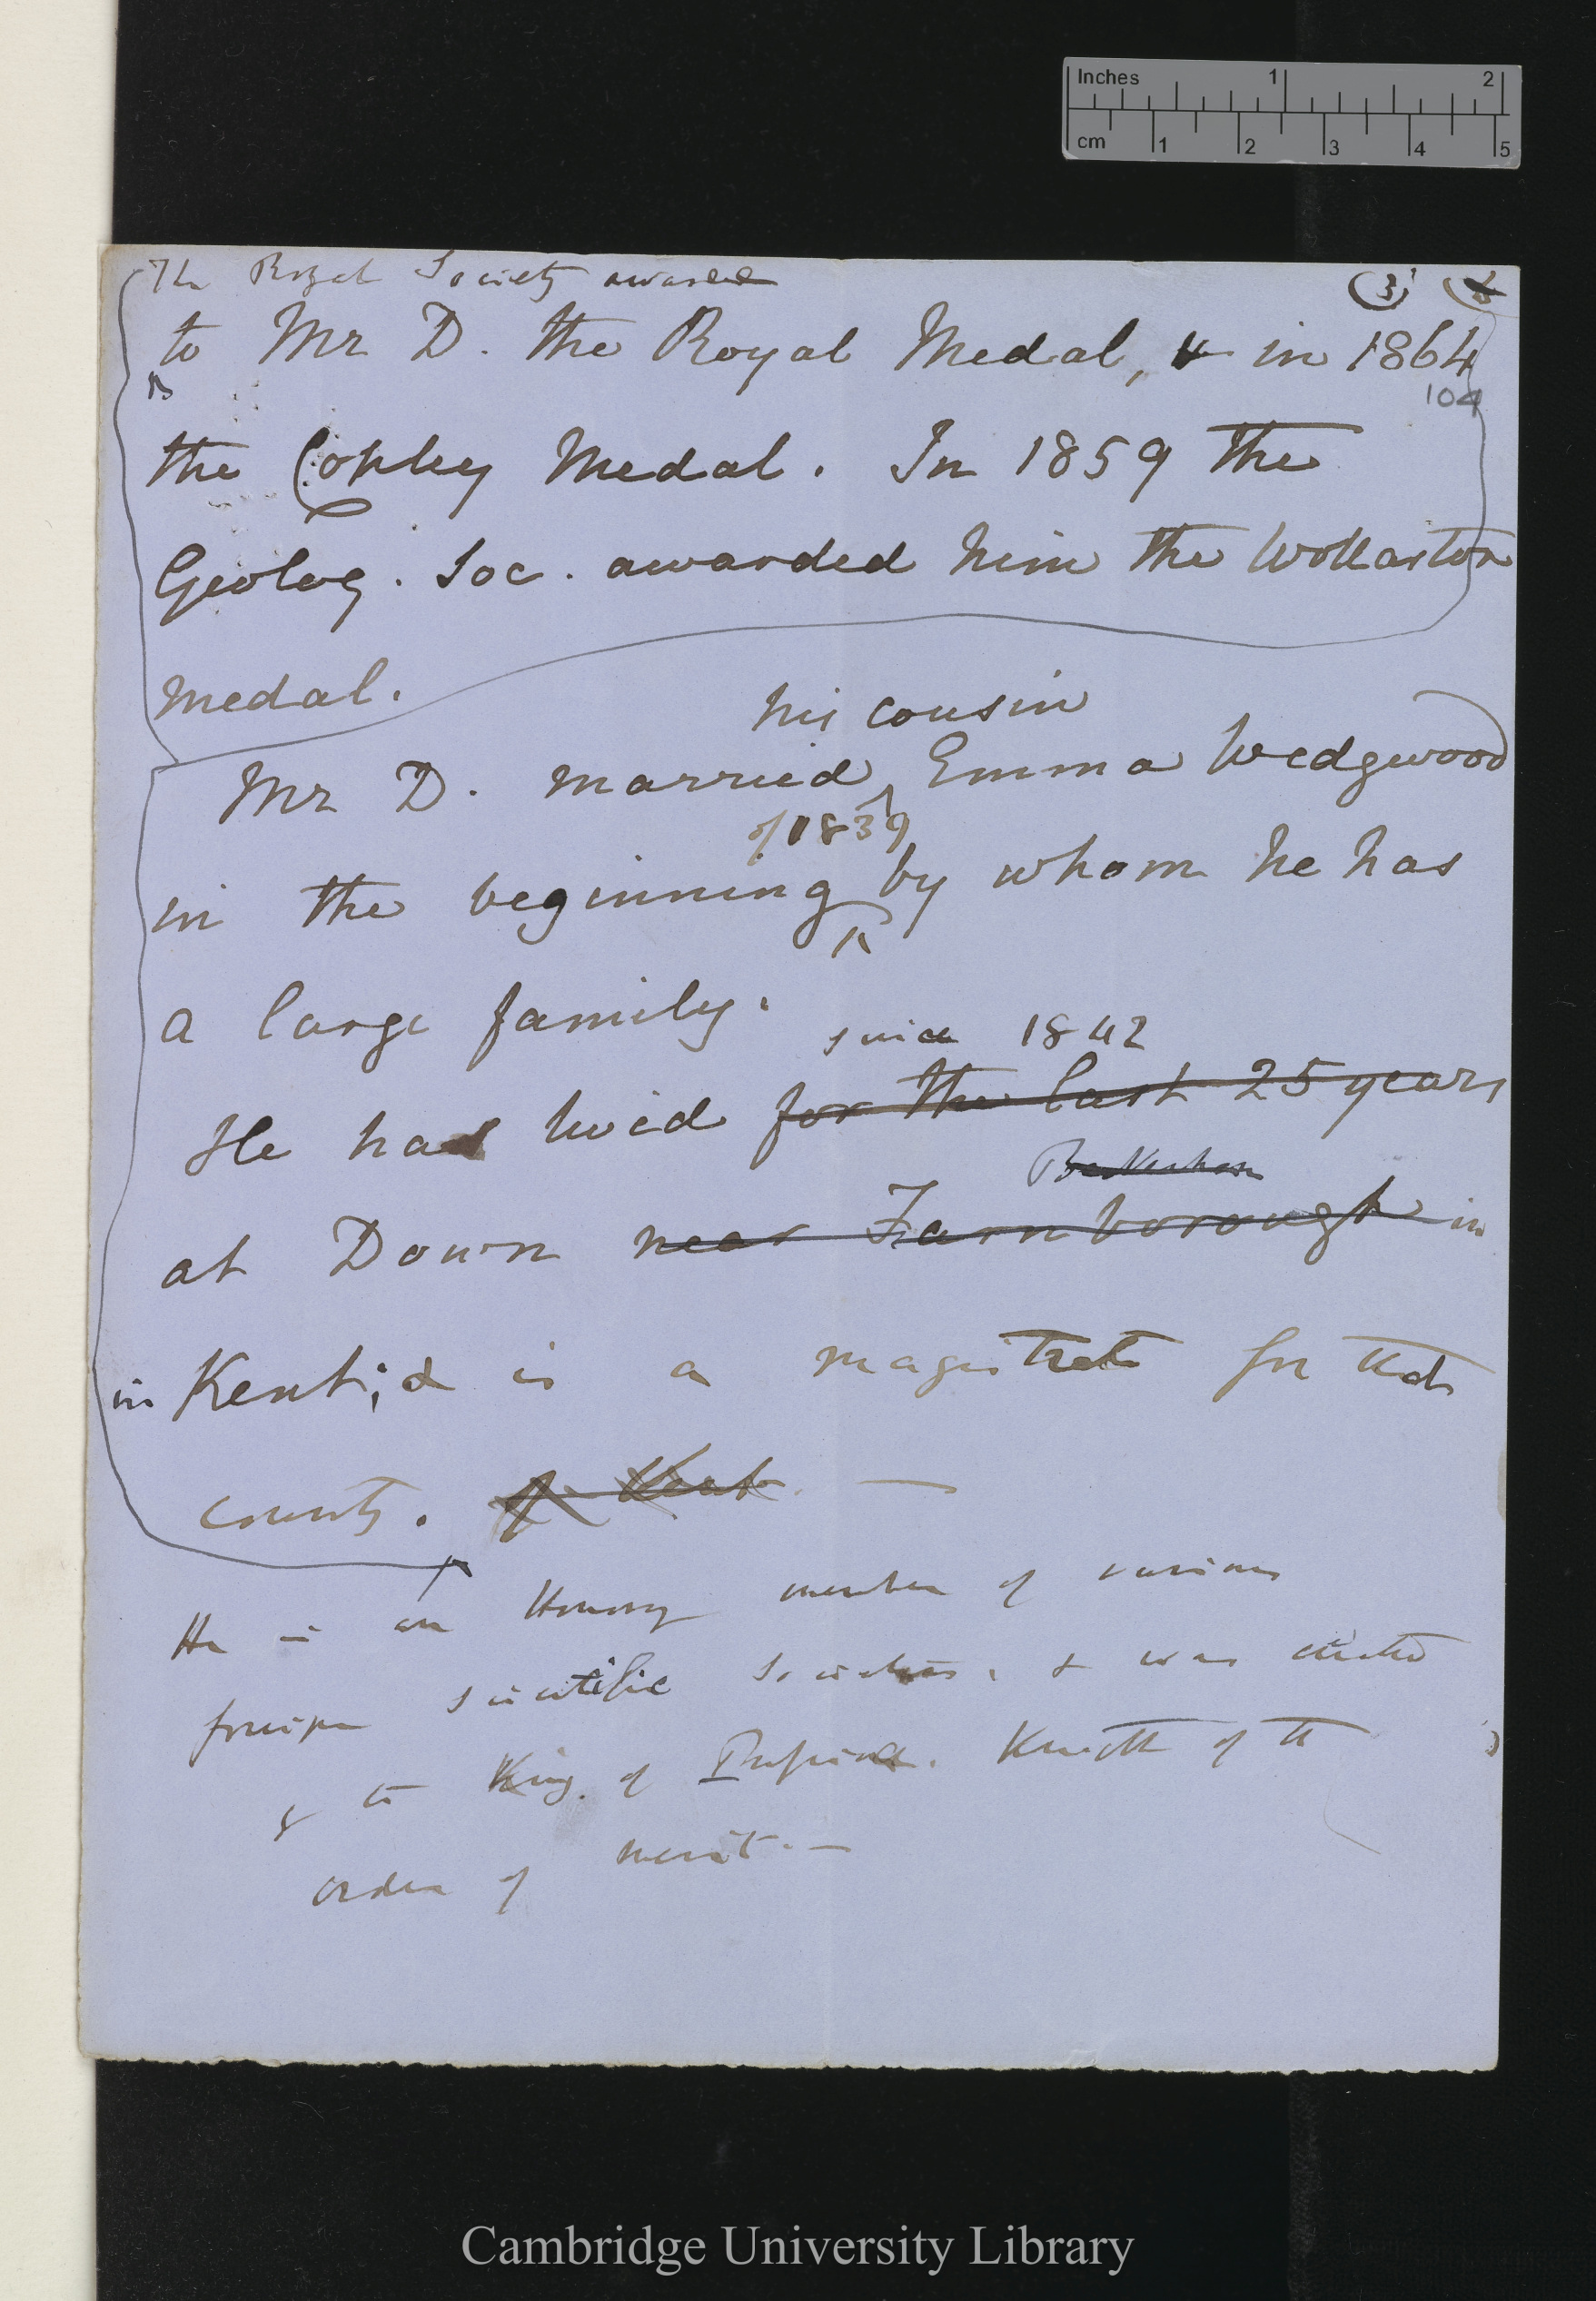 Inches 1 2
cm 1 2 3 4 5
The Royal Society awarded
(3)
to Mr D. the Royal Medal, & in 1864
104
the Copley Medal. In 1859 the
Geolog. Soc. awarded him the Wollaston
medal.
his cousin
Mr D. married Emma Wedgwood
of 1839
in the beginning by whom he has
a large family.
since 1842
He has lived for the last 25 years
Beckenham
at Down near Farnborough in
in Kent; & is a magistrate for that
county. of Kent. —
He is an Honory member of various
foreign scientific Societies, & was elected
& the King of Prussia. Knight of the
order of merit. —
Cambridge University Library